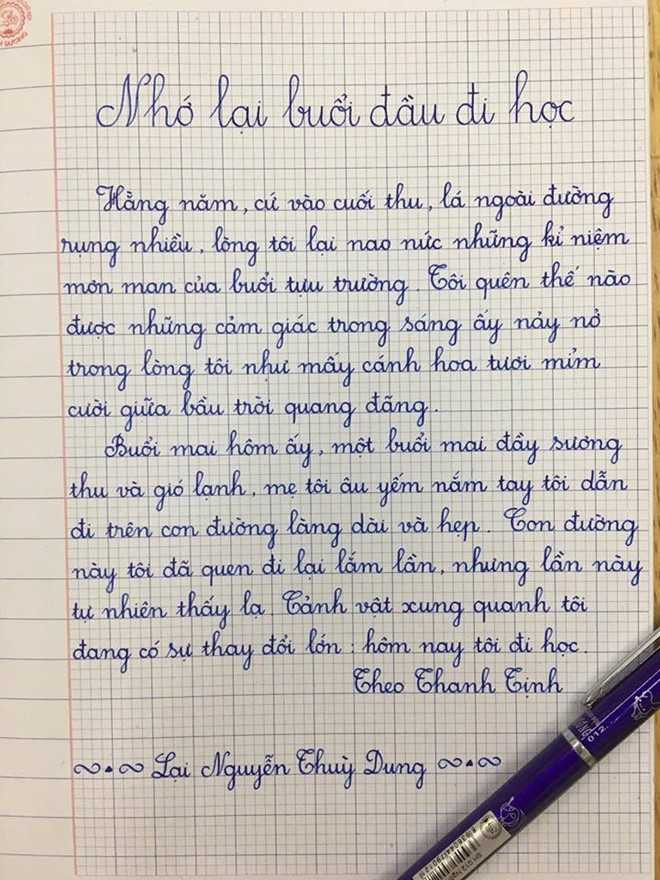 Nhớ lại buổi đầu đi học
Hằng năm, cứ vào cuối thu, lá ngoài đường
rụng nhiều, lòng tôi lại nao nức những kỉ niệm
mơn man của buổi tựu trường. Tôi quên thế nào
được những cảm giác trong sáng ấy nảy nở
trong lòng tôi như mấy cánh hoa tươi mỉm
cười giữa bầu trời quang đãng.
Buổi mai hôm ấy, một buổi mai đầy sương
thu và gió lạnh, mẹ tôi âu yếm nắm tay tôi dẫn
đi trên con đường làng dài và hẹp. Con đường
này tôi đã quen đi lại lắm lần, nhưng lần này
tự nhiên thấy lạ. Cảnh vật xung quanh tôi
đang có sự thay đổi lớn : hôm nay tôi đi học.
Theo Thanh Tịnh
Lại Nguyễn Thuỳ Dung